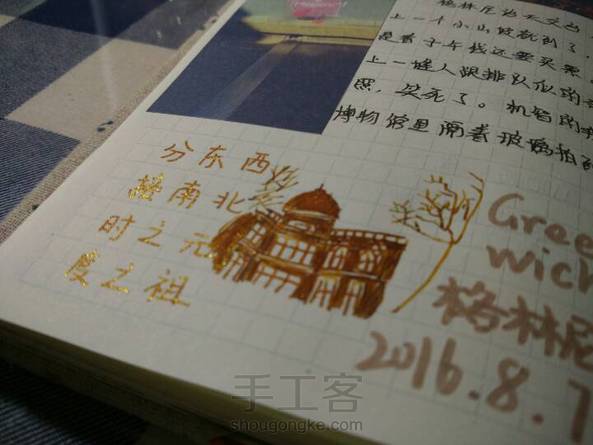 格林尼治天文台
上一个小山坡就到了，
跟着子午线还要买票
上一堆人跟排队似的
照，笑死了。机智的我
博物馆里隔着玻璃拍
分东西
接南北
时之元
度之祖
Gree
wich
格林尼
2016.8.7
手工客
shougongke.com